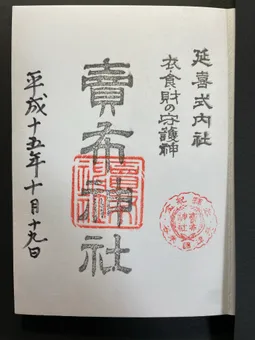 延喜式内社
衣食財の守護神
賣布神社
平成十五年十月十九日